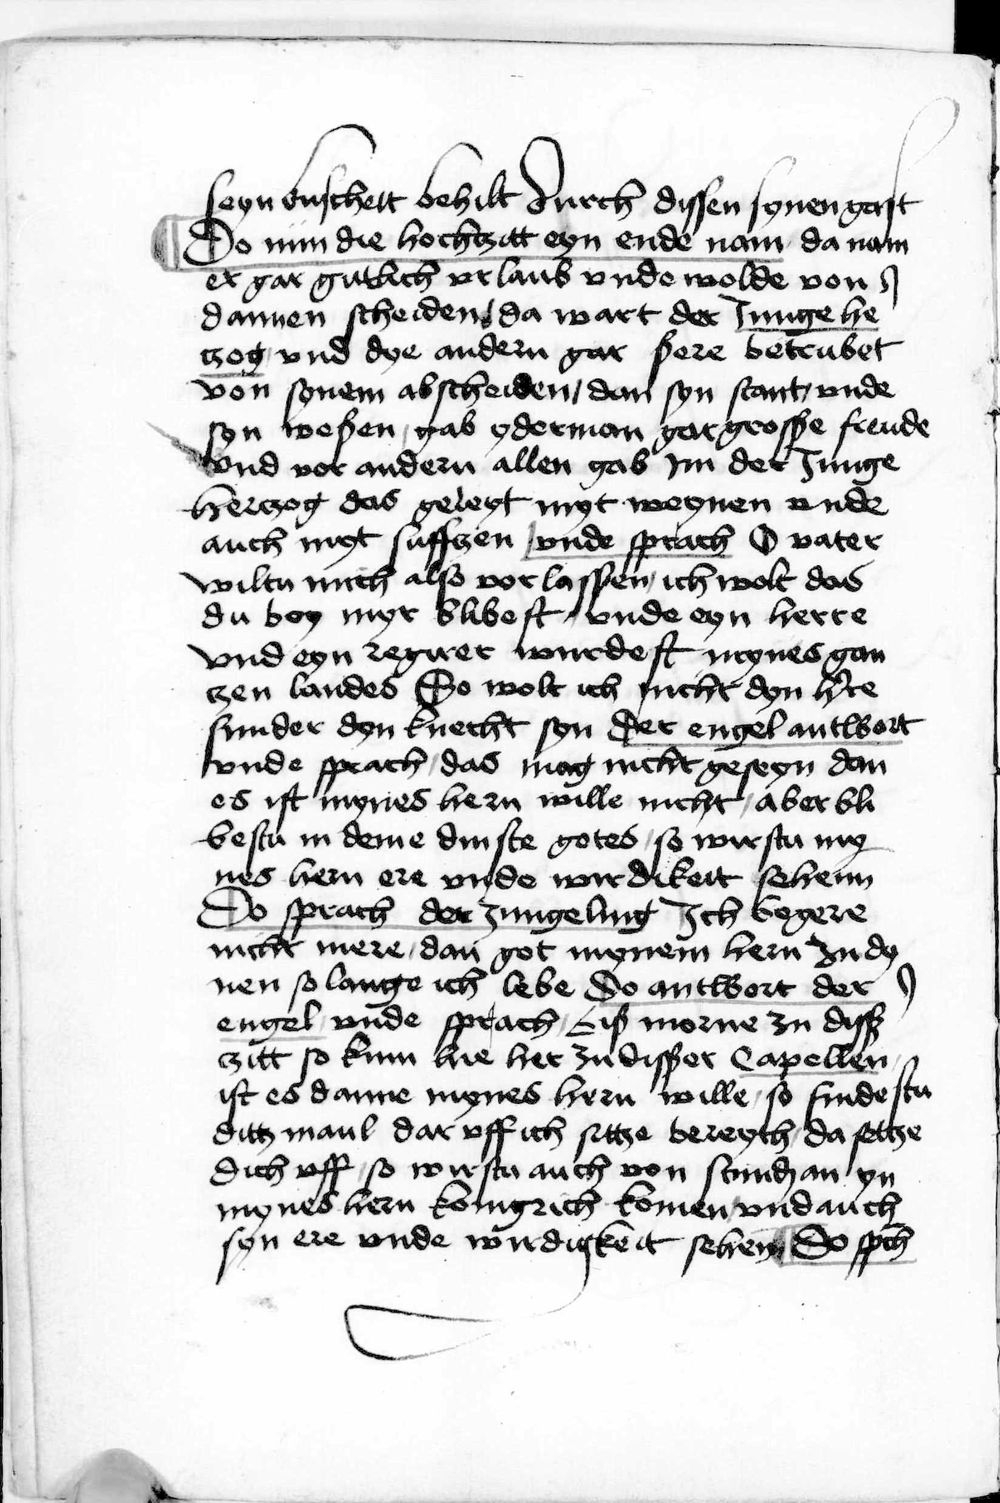 seyn kuscheit behilt Durch dissen synen gast
Do nun die hochtzitt eyn ende nam da nam
er gar gutlich vrlaub vnde wolde von
dannen scheiden / da wart der Junge he
tzog / vnd dye andern gar sere betrubet
von synem abscheiden / dan syn stant / vnde
syn weßen / gab yderman gar grosse freude
vnd vor andern allen gab im der Junge
hertzog das geleyt myt weynen vnde
auch myt suffzen / vnde sprach O vater
wiltu mich also vorlassen / ich wolt das
du bey myr blibest / vnde eyn herre
vnd eyn regirer wurdest mynes gan
tzen landes So wolt ich nicht dyn h're
sunder dyn knecht syn Der engel antwort
vnde sprach / das mag nicht geseyn dan
es ist mynes hern wille nicht / aber bli
bestu in deme dinste gotes / so wirstu my
nes hern ere vnde wirdikeit sehenn
Do sprach der Jungeling Ich begere
nicht mere / dan got mynem hern zu dy
nen so lange ich lebe Do antwort der
engel / vnde sprach / Biß morne zu disß
tzitt so kum hie her zu disßer Capellen /
ist es danne mynes hern wille / so findestu
ditz maul dar vff ich sitze bereytt / da setze
dich vff / so wirstu auch von stundt an yn
mynes hern konigrich komen / vnd auch
syn ere vnde wirdigkeit sehenn Do spch